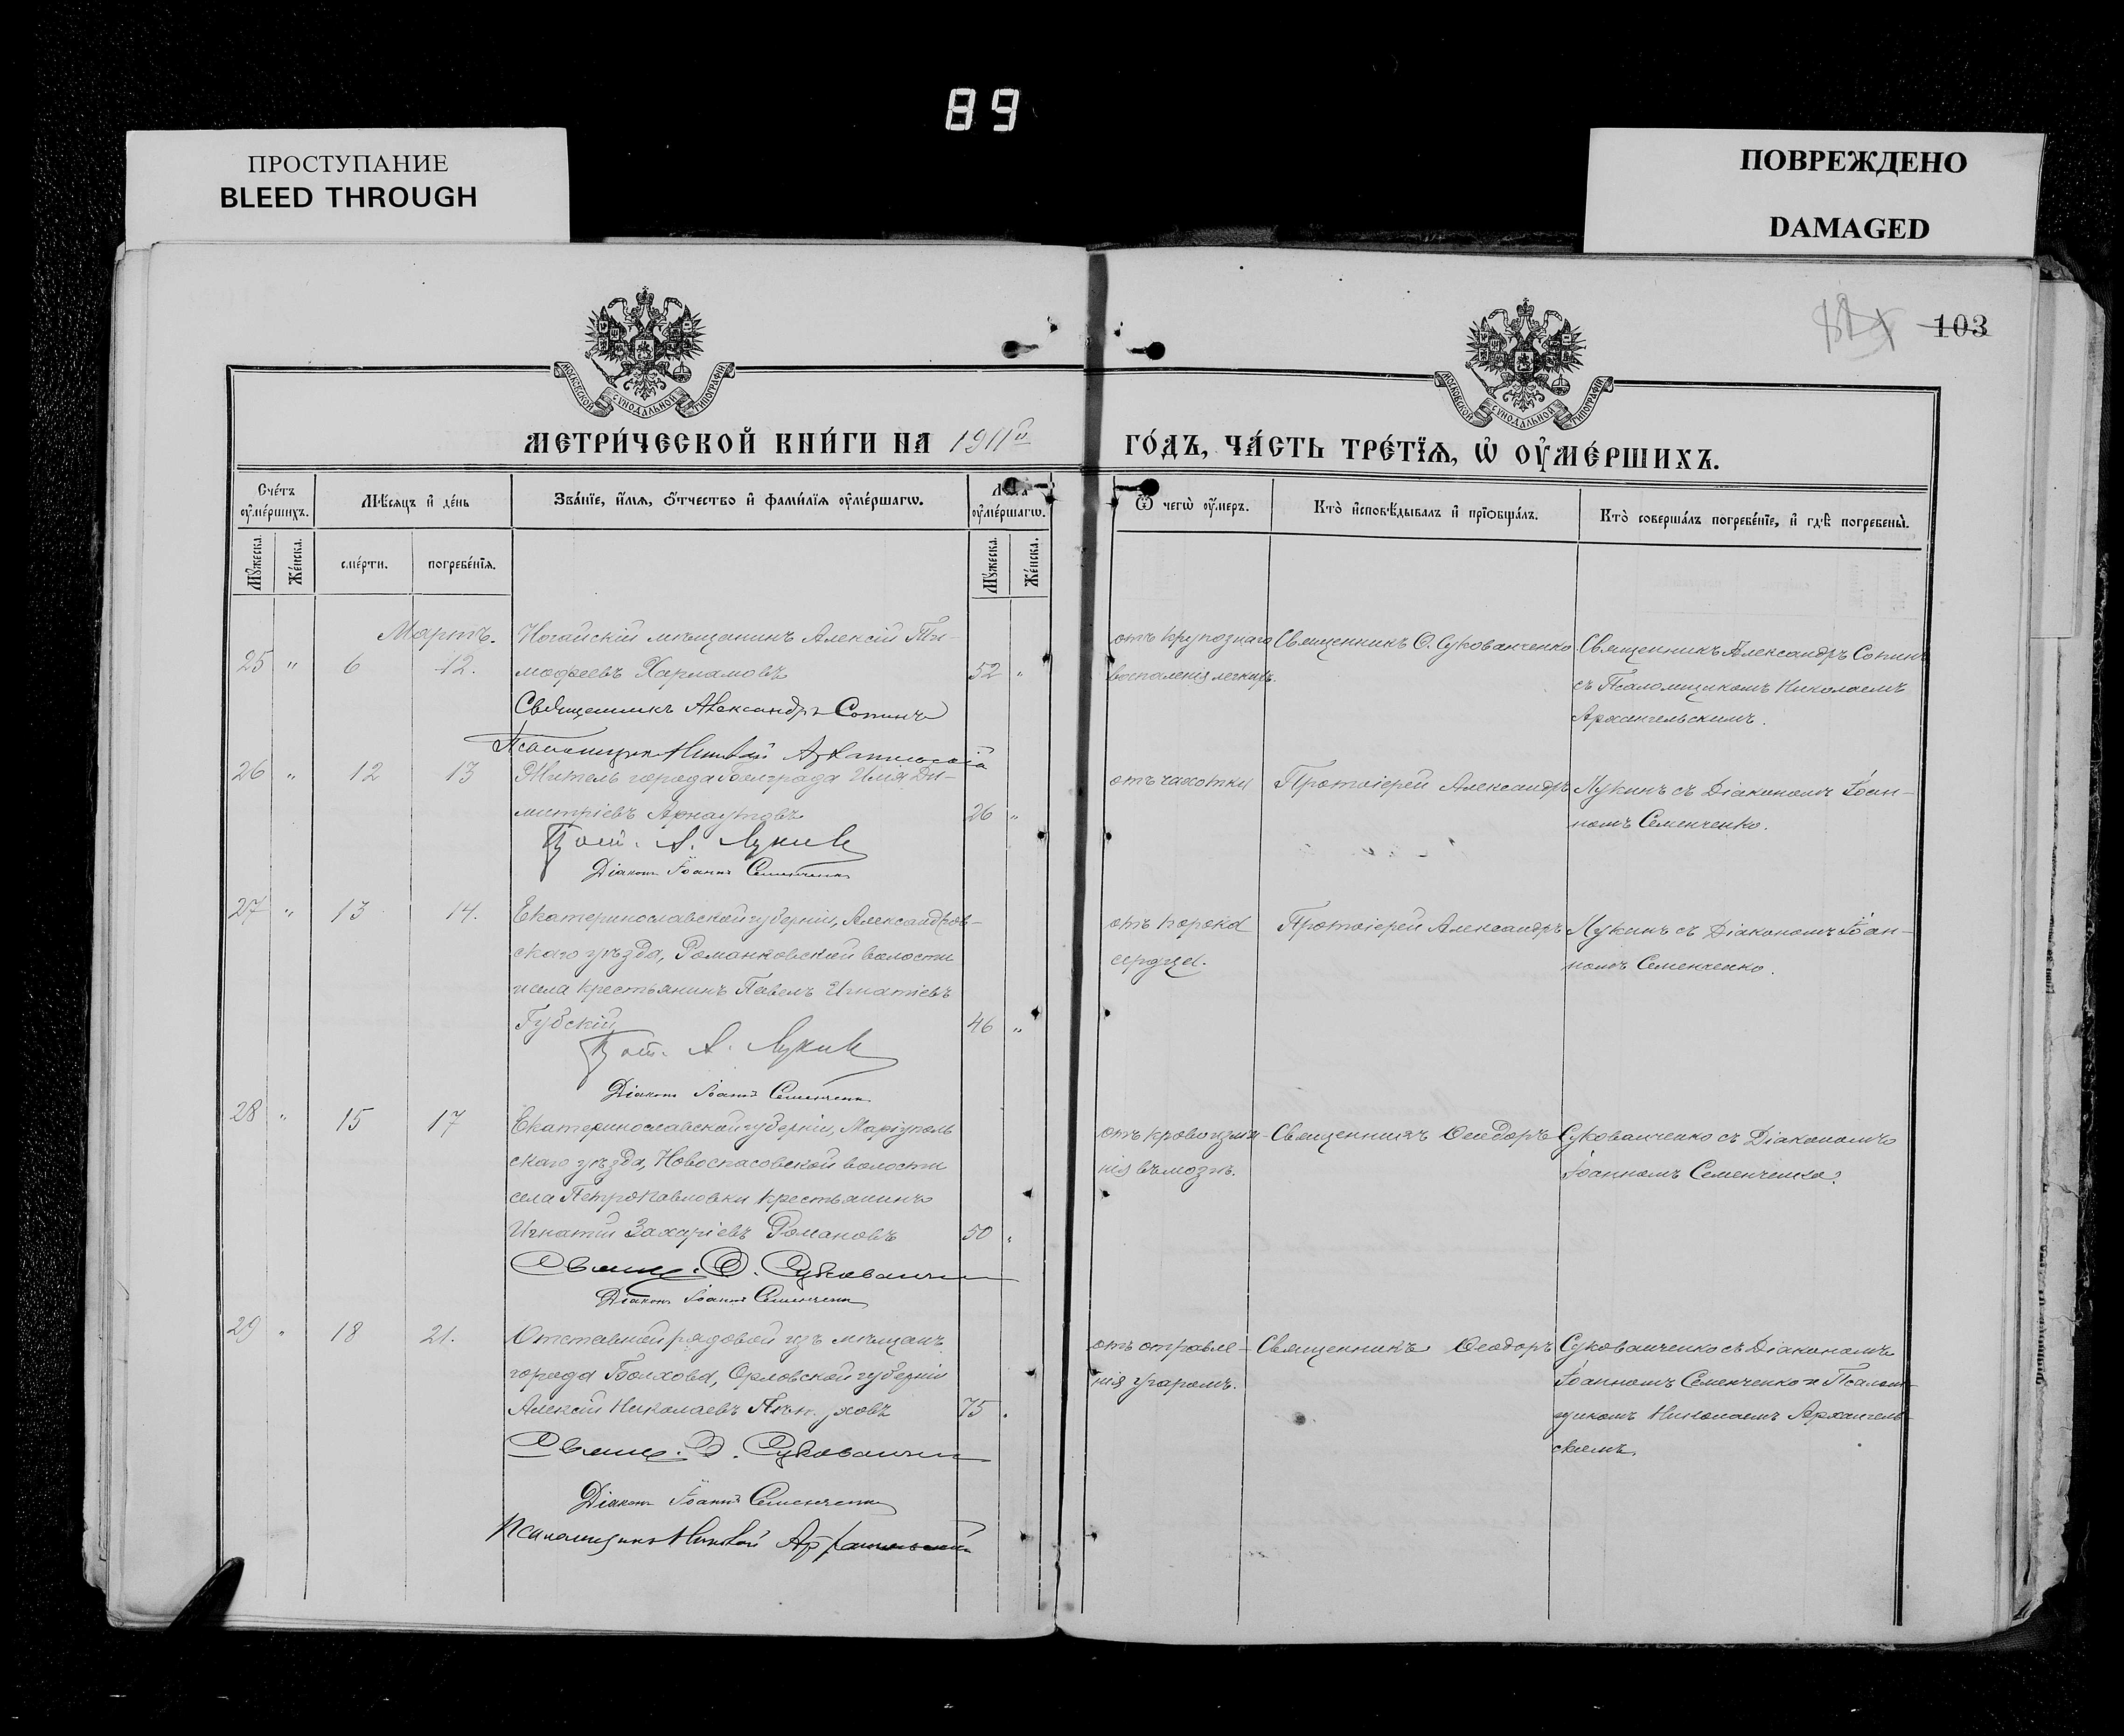 89
ПРОСТУПАНИЕ
BLEED THROUGH
ПОВРЕЖДЕНО
DAMAGED
103
МОСКОВСКОЙ СУНОДАЛЬНОЙ ТИПОГРАФІИ
МОСКОВСКОЙ СУНОДАЛЬНОЙ ТИПОГРАФІИ
МЕТРИ́ЧЕСКОЙ КНИ́ГИ НА 1911й ГО́ДЪ, ЧА́СТЬ ТРЕ́ТЇѦ, Ѡ ОУ҆МЕ́РШИХЪ.
Сче́тъ оу҆ме́ршихъ.
Мѣ́сяцъ и҆ де́нь
Зва́нїе, и҆́мя, ѻ҆́тчество и҆ фами́лїя оу҆ме́ршагѡ.
Лѣта оу҆ме́ршагѡ.
Ѿ чегѡ̀ оу҆́меръ.
Кто̀ и҆сповѣ́дывалъ и҆ прїѡбща́лъ.
Кто̀ соверша́лъ погребе́нїе, и҆ гдѣ̀ погребены̀.
Мꙋ́жеска.
Же́нска.
сме́рти.
погребе́нїя.
Мꙋ́жеска.
Же́нска.
Мартъ.
25 " 6 12. Ногайскій мѣщанинъ Алексій Ти-
мофеевъ Харламовъ 52 "
Священникъ Александръ Сопинъ
Псаломщикъ Николай Архангельскій
отъ крупознаго
воспаленія легкихъ.
Священникъ Ѳ. Сукованченко
Священникъ Александръ Сопинъ
съ Псаломщикомъ Николаемъ
Архангельскимъ.
26 " 12 13 Житель города Белграда Илія Ди-
митріевъ Арнаутовъ 26 "
Прот. А. Лукинъ
Діаконъ Іоаннъ Семенченко
отъ чахотки
Протоіерей Александръ Лукинъ съ Діакономъ Іоан-
номъ Семенченко.
27 " 13 14. Екатеринославской губерніи, Александров-
скаго уѣзда, Романковской волости
и села крестьянинъ Павелъ Игнатіевъ
Губскій 46 "
Прот. А. Лукинъ
Діаконъ Іоаннъ Семенченко
отъ порока
сердца.
Протоіерей Александръ Лукинъ съ Діакономъ Іоан-
номъ Семенченко.
28 " 15 17 Екатеринославской губерніи, Маріуполь
скаго уѣзда, Новоспасовской волости
села Петропавловки крестьянинъ
Игнатій Захаріевъ Романовъ 50 "
Свящ. Ѳ. Сукованченко
Діаконъ Іоаннъ Семенченко
отъ кровоизлія-
нія въ мозгъ.
Священникъ Ѳеодоръ Сукованченко съ Діакономъ
Іоанномъ Семенченко.
29 " 18 21. Отставной рядовой изъ мѣщанъ
города Болхова, Орловской губерніи
Алексій Николаевъ 75 "
Свящ. Ѳ. Сукованченко
Діаконъ Іоаннъ Семенченко
Псаломщикъ Николай Архангельскій
отъ отравле-
нія угаромъ.
Священникъ Ѳеодоръ Сукованченко съ Діакономъ
Іоанномъ Семенченко и Псалом-
щикомъ Николаемъ Архангель-
скимъ.